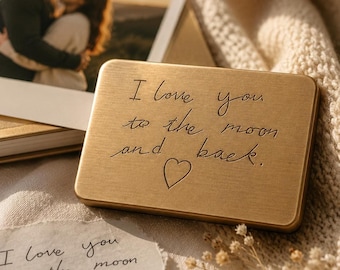 I love you
to the moon
and back.
I love you
to the moon